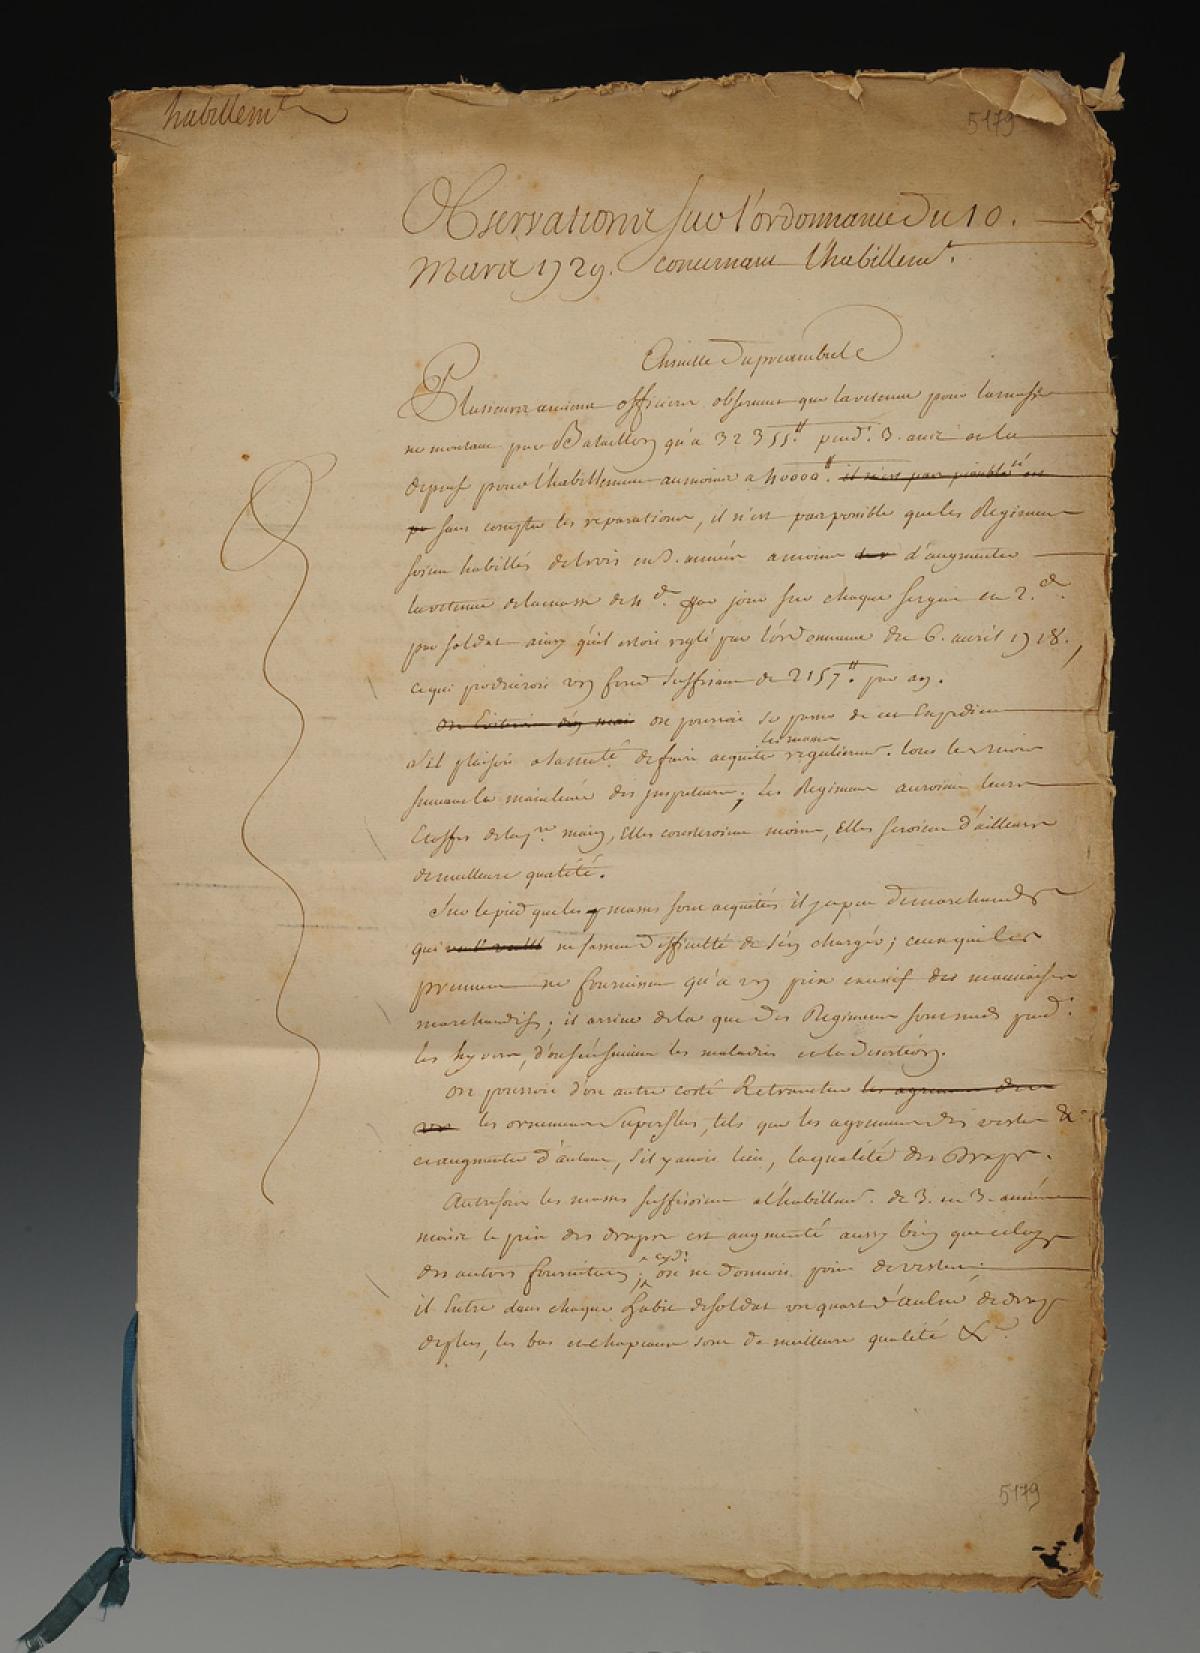 habillemt
5179
Observations sur l'ordonnance du 10.
Mars 1729. concernant l'habillemt.
Ensuitte du preambule
Plusieurs anciens officiers observent que la retenue pour la masse
ne montant par Bataillon qu'a 32355.tt pendt. 3. ans et la
depense pour l'habillement au moins a 40000tt. il n'est pas possible
sans compter les reparations, il n'est pas possible que les Regimens
soient habillés de trois en 3. années a moins d'augmenter
la retenue de la masse de 4 d. par jour sur chaque sergent et 2. d.
par soldat ainsy qu'il estoit reglé par l'ordonnance du 6. avril 1718.,
ce qui produiroit un fond suffisant de 2157.tt par an.
on pourroit se passer de cet Expedient
les masses
s'il plaisoit a sa mté de faire acquiter regulieremt. tous les mois
suivant la mainlevée des inspecteurs; les Regimens auroient leurs
Etoffes de la pre. main, Elles cousteroient moins, Elles seroient d'ailleurs
de meilleure qualité.
Sur le pied que les masses sont acquités il y a peu de marchands
qui ne fassent difficulté de s'en charger; ceux qui les
prennent ne fournissent qu'a un prix excessif des mauvaises
marchandises; il arrive de la que des Regimens sont nuds pendt.
les hyvers, d'ou s'ensuivent les maladies et la desertion.
On pourroit d'un autre costé Retrancher les agremens des
les ornemens superflus, tels que les agremens des vestes &c
et augmenter d'autant, s'il y avoit lieu, la qualité des Draps.
Autrefois les masses suffisoient a l'habillemt. de 3. en 3. années
mais le prix des draps est augmenté aussy bien que celuy
des autres fournitures; on ne donnoit point de vestes
il Entre dans chaque habit de soldat un quart d'aulne de drap
de plus, les bas et chapeaux sont de meilleure qualité &c.
5179